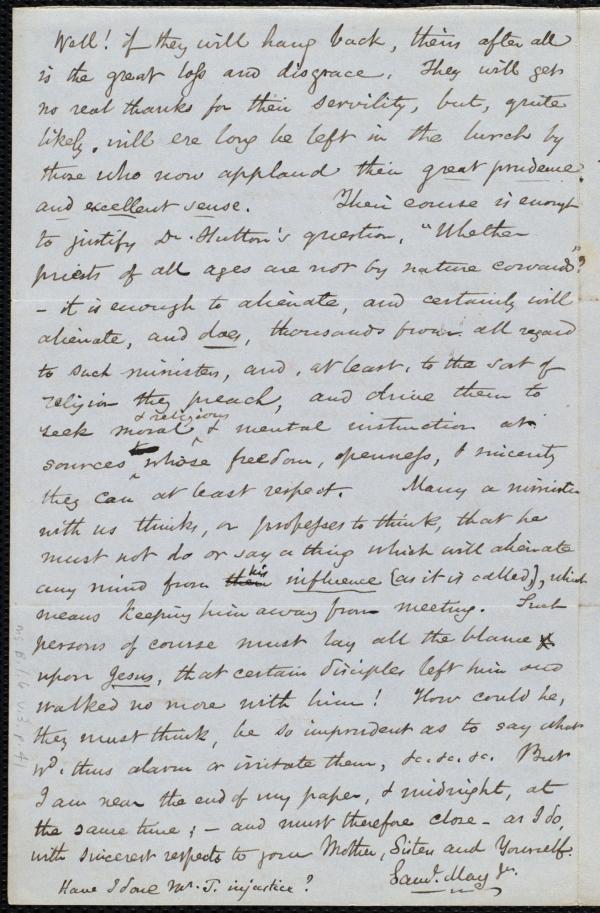 Well! if they will hang back, theirs after all
is the great loss and disgrace. They will get
no real thanks for their servility, but, quite
likely, will ere long be left in the lurch by
those who now applaud their great prudence
and excellent sense. Their course is enough
to justify Dr. Hutton's question, "Whether
priests of all ages are not by nature cowards"?
- it is enough to alienate, and certainly will
alienate, and does, thousands from all regard
to such ministers, and, at least, to the sort of
religion they preach, and drive them to
& religious
seek moral & mental instruction at
sources whose freedom, openness, & sincerity
they can at least respect. Many a minister
with us thinks, or professes to think, that he
must not do or say a thing which will alienate
any mind from their his influence (as it is called), which
means keeping him away from meeting. Such
persons of course must lay all the blame
upon Jesus, that certain disciples left him and
walked no more with him! How could he,
they must think, be so imprudent as to say what
wd. thus alarm or irritate them, &c. &c. &c. But
I am near the end of my paper, & midnight, at
the same time; - and must therefore close - as I do,
with sincerest respects to your Mother, Sister and Yourself.
Saml. May Jr.
Have I done Mr. J. injustice?